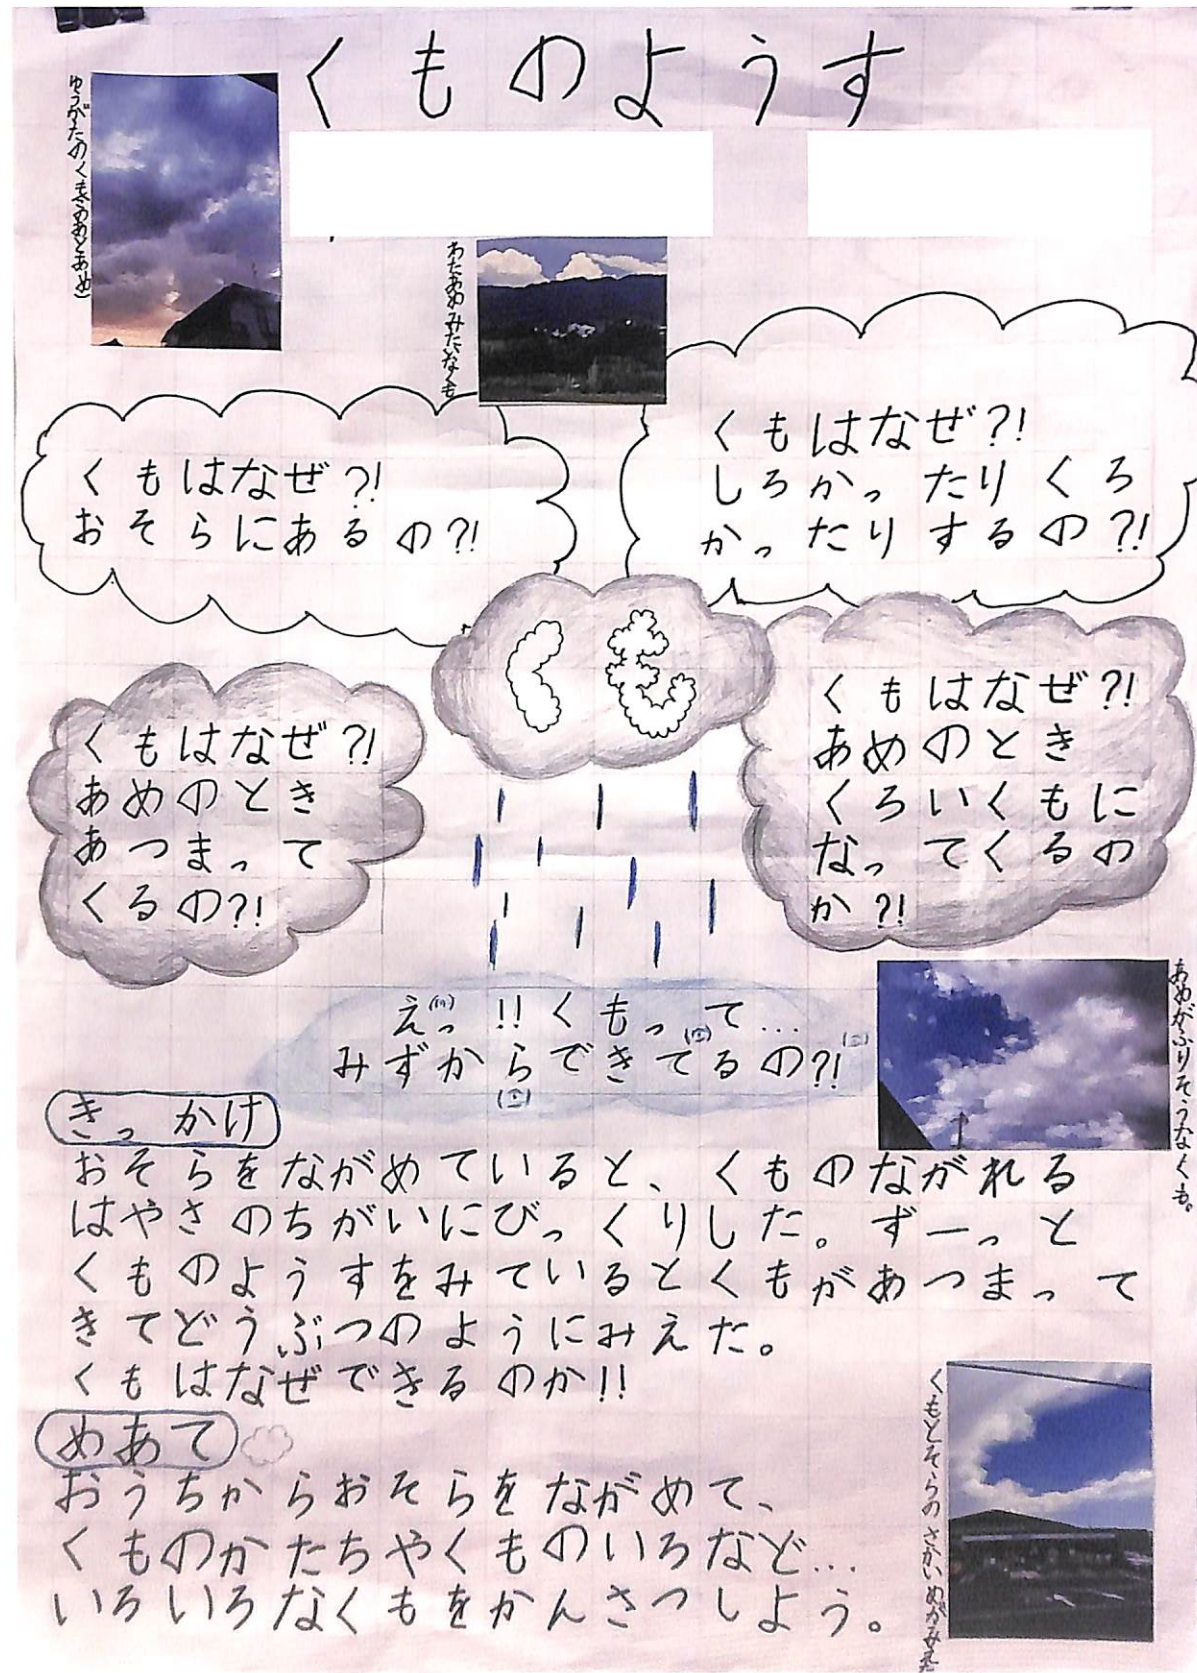 くものようす
ゆうがたのくも(このあとあめ)
わたあめみたいなくも
くもはなぜ?!
おそらにあるの?!
くもはなぜ?!
しろかったりくろ
かったりするの?!
くも
くもはなぜ?!
あめのとき
あつまって
くるの?!
くもはなぜ?!
あめのとき
くろいくもに
なってくるの
か?!
えっ!!くもって...
みずからできてるの?!
あめがふりそうなくも。
きっかけ
おそらをながめていると、くものながれる
はやさのちがいにびっくりした。ずーっと
くものようすをみているとくもがあつまって
きてどうぶつのようにみえた。
くもはなぜできるのか!!
めあて
おうちからおそらをながめて、
くものかたちやくものいろなど...
いろいろなくもをかんさつしよう。
くもとそらのさかいめがみえた